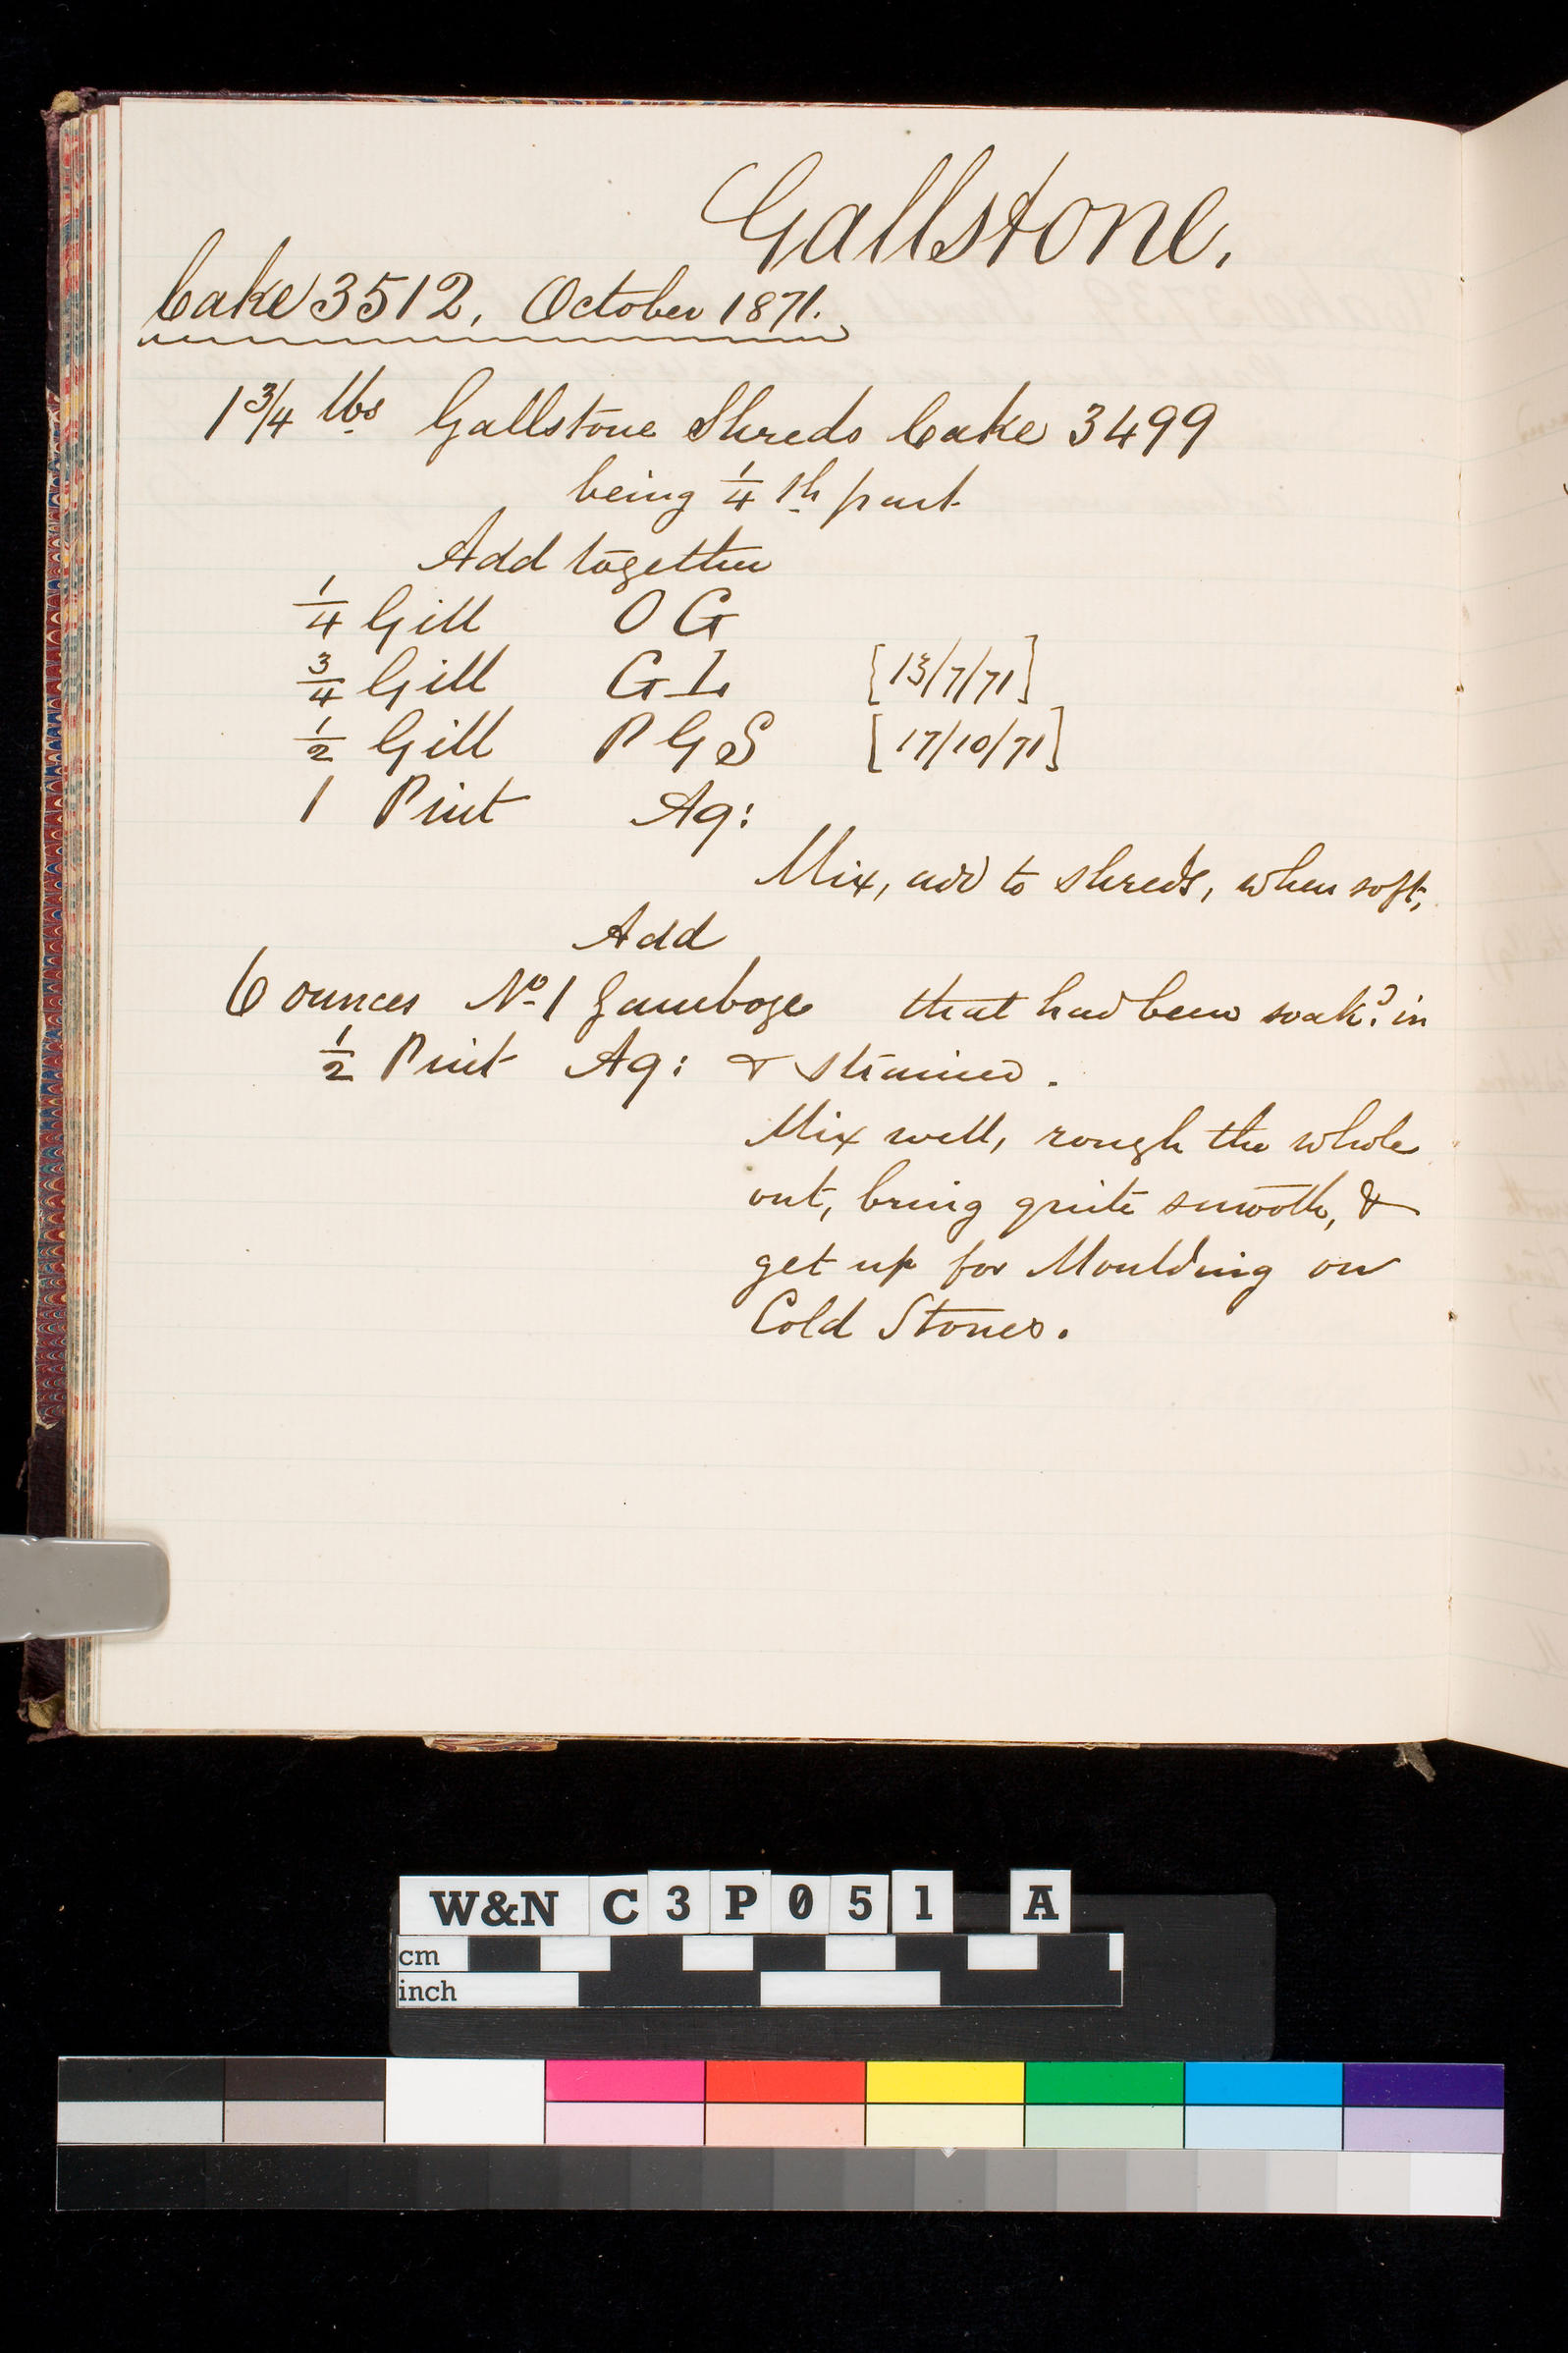 Gallstone.
Cake 3512, October 1871.
1 3/4 lbs Gallstone Shreds Cake 3499
being 1/4 th part
Add together
1/4 Gill O G
3/4 Gill G L [13/7/71]
1/2 Gill P G S [17/10/71]
1 Pint Aq:
Mix, add to shreds, when soft,
Add
6 ounces No 1 Gamboge that had been soakd in
1/2 Pint Aq: & strained.
Mix well, rough the whole
out, bring quite smooth, &
get up for Moulding on
Cold Stones.
W&N C3P051 A
cm
inch